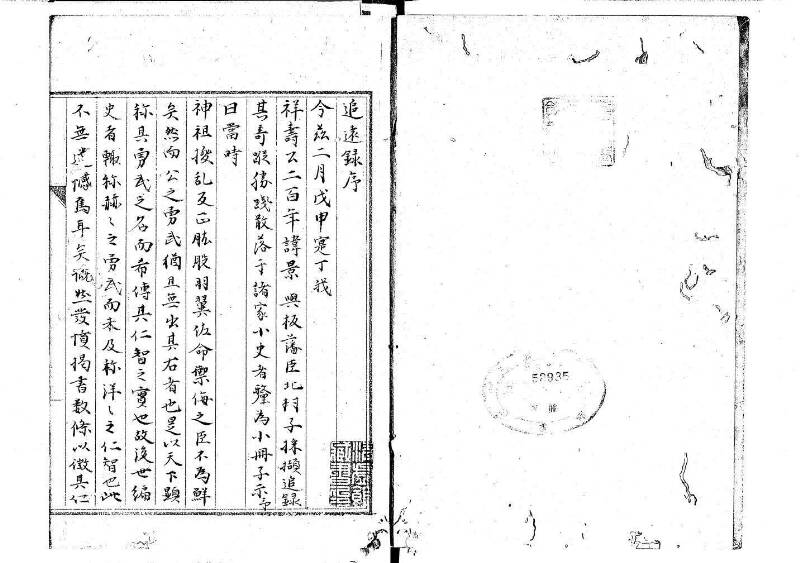 追遠録序
今茲二月戊申寔丁我
祥壽公二百年諱景 與板藩臣北村子採擷追録
其奇蹤勝蹟散落于諸家小史者釐為小冊子示予
曰當時
神祖撥乱反正肱股羽翼佐命禦侮之臣不為鮮
矣然而公之勇武猶且無出其右者也是以天下顕
称其勇武之名而希傳其仁智之實也故後世編
史者輙称赫〻之勇武而未及称洋〻之仁智也此
不無遺憾焉耳矣慨然發憤掲書数條以徴其仁
58935